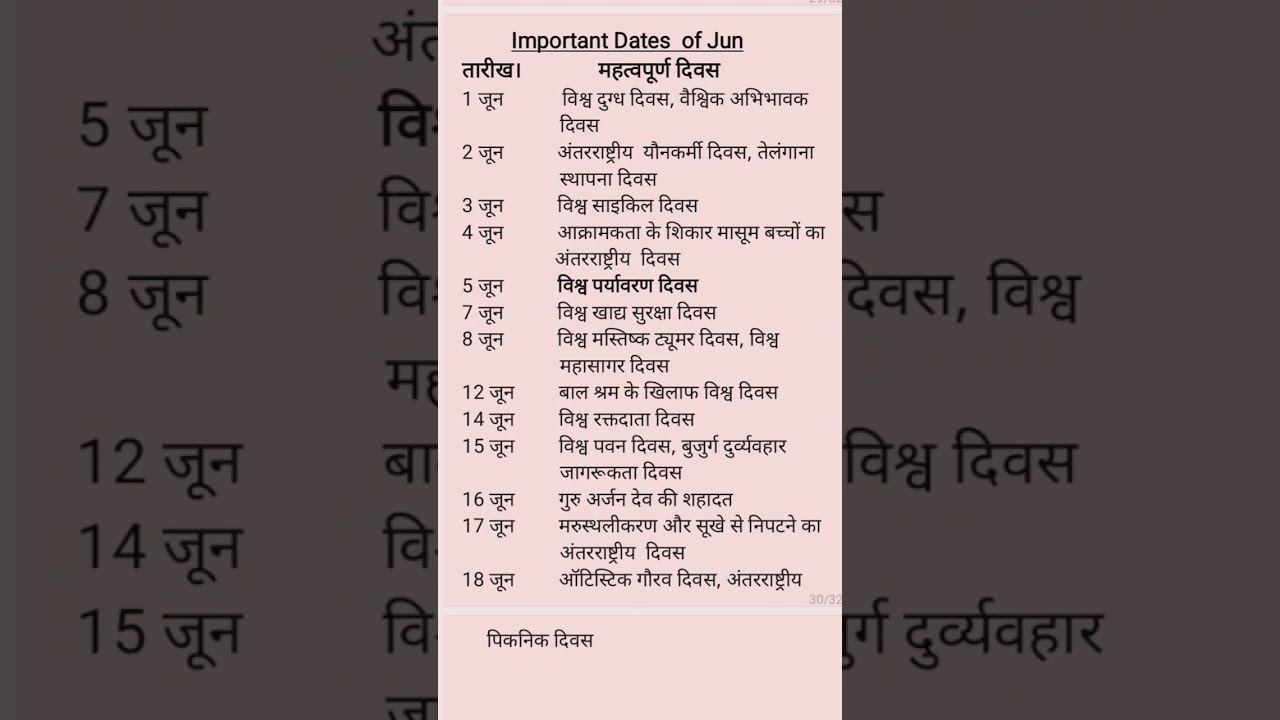 29/32
Important Dates of Jun
तारीख। महत्वपूर्ण दिवस
1 जून विश्व दुग्ध दिवस, वैश्विक अभिभावक
दिवस
2 जून अंतरराष्ट्रीय यौनकर्मी दिवस, तेलंगाना
स्थापना दिवस
3 जून विश्व साइकिल दिवस
4 जून आक्रामकता के शिकार मासूम बच्चों का
अंतरराष्ट्रीय दिवस
5 जून विश्व पर्यावरण दिवस
7 जून विश्व खाद्य सुरक्षा दिवस
8 जून विश्व मस्तिष्क ट्यूमर दिवस, विश्व
महासागर दिवस
12 जून बाल श्रम के खिलाफ विश्व दिवस
14 जून विश्व रक्तदाता दिवस
15 जून विश्व पवन दिवस, बुजुर्ग दुर्व्यवहार
जागरूकता दिवस
16 जून गुरु अर्जन देव की शहादत
17 जून मरुस्थलीकरण और सूखे से निपटने का
अंतरराष्ट्रीय दिवस
18 जून ऑटिस्टिक गौरव दिवस, अंतरराष्ट्रीय
30/32
पिकनिक दिवस
5 जून
7 जून
8 जून
दिवस, विश्व
12 जून
विश्व दिवस
14 जून
15 जून
दुर्व्यवहार